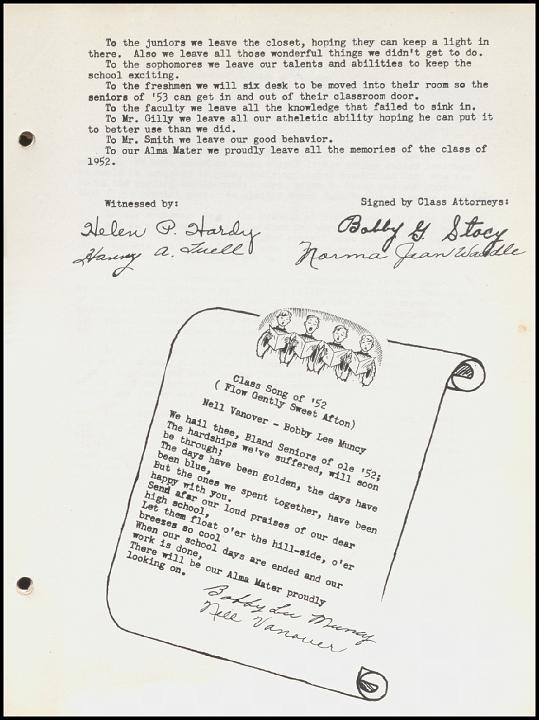 To the juniors we leave the closet, hoping they can keep a light in
there. Also we leave all those wonderful things we didn't get to do.
To the sophomores we leave our talents and abilities to keep the
school exciting.
To the freshmen we will six desk to be moved into their room so the
seniors of '53 can get in and out of their classroom door.
To the faculty we leave all the knowledge that failed to sink in.
To Mr. Gilly we leave all our atheletic ability hoping he can put it
to better use than we did.
To Mr. Smith we leave our good behavior.
To our Alma Mater we proudly leave all the memories of the class of
1952.
Witnessed by: Signed by Class Attorneys:
Helen P. Hardy Bobby G. Stacy
A. Norma Jean Waddle
Class Song of '52
( Flow Gently Sweet Afton)
Nell Vanover - Bobby Lee Muncy
We hail thee, Bland Seniors of ole '52;
The hardships we've suffered, will soon
be through;
The days have been golden, the days have
been blue,
But the ones we spent together, have been
happy with you.
Send afar our loud praises of our dear
high school,
Let them float o'er the hill-side, o'er
breezes so cool
When our school days are ended and our
work is done,
There will be our Alma Mater proudly
looking on.
Bobby Lee Muncy
Nell Vanover